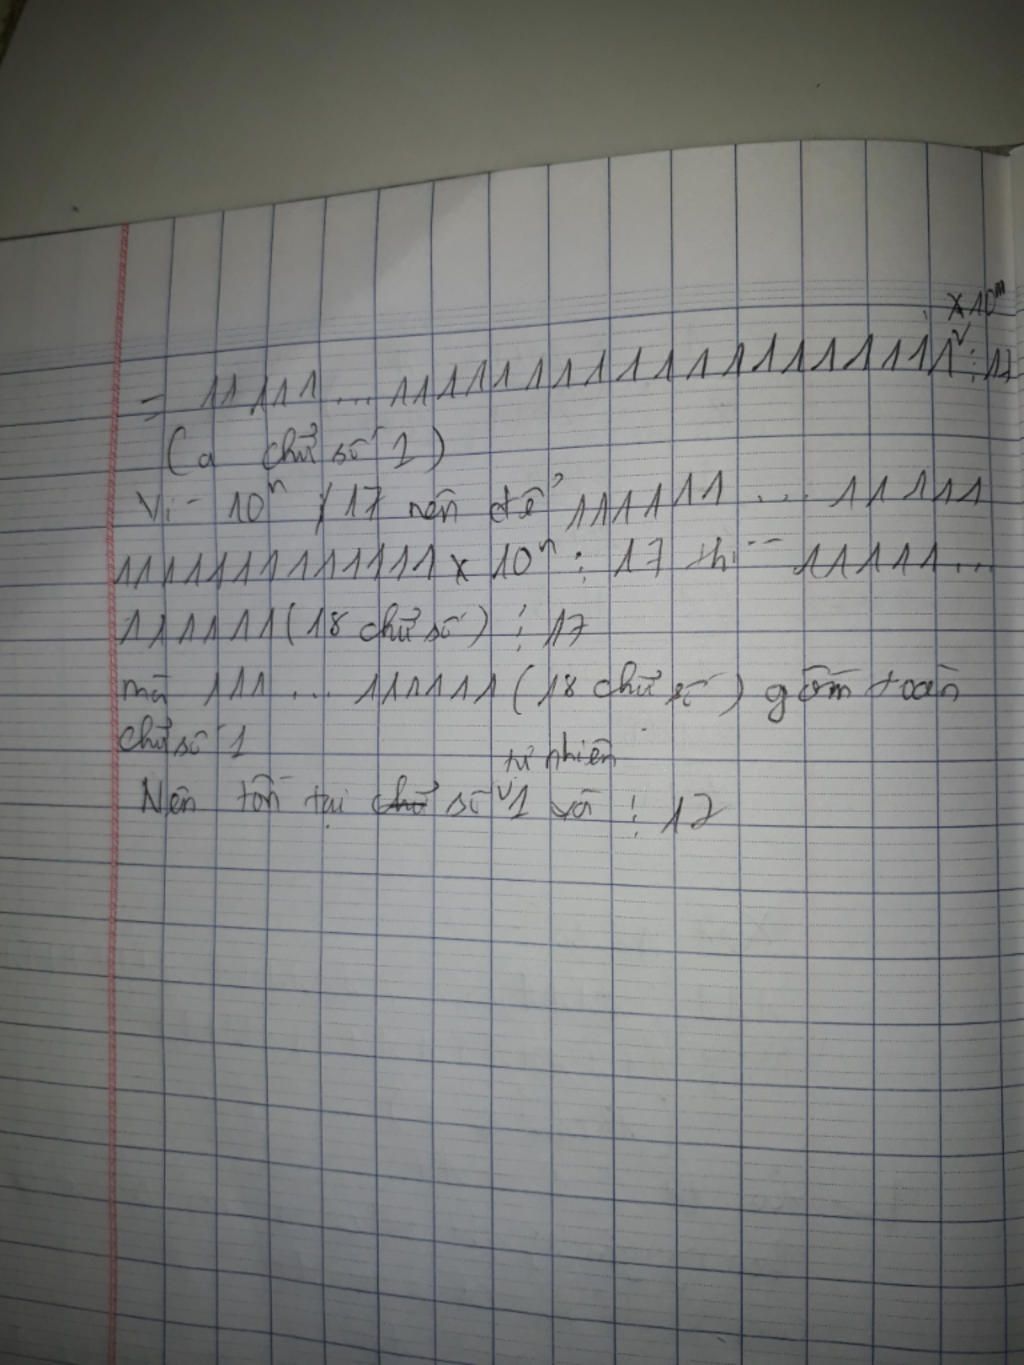 x 10ⁿ
= 11111...1111111111111111111 ⋮ 17
(a chữ số 1)
Vì 10ⁿ ⋮̸ 17 nên để 1111111 ... 11111
11111111111111 x 10ⁿ ⋮ 17 thì 11111...
1111111 (18 chữ số) ⋮ 17
mà 111 ... 111111 (18 chữ số) gồm toàn
chữ số 1
tự nhiên
Nên tồn tại số 1 và ⋮ 17